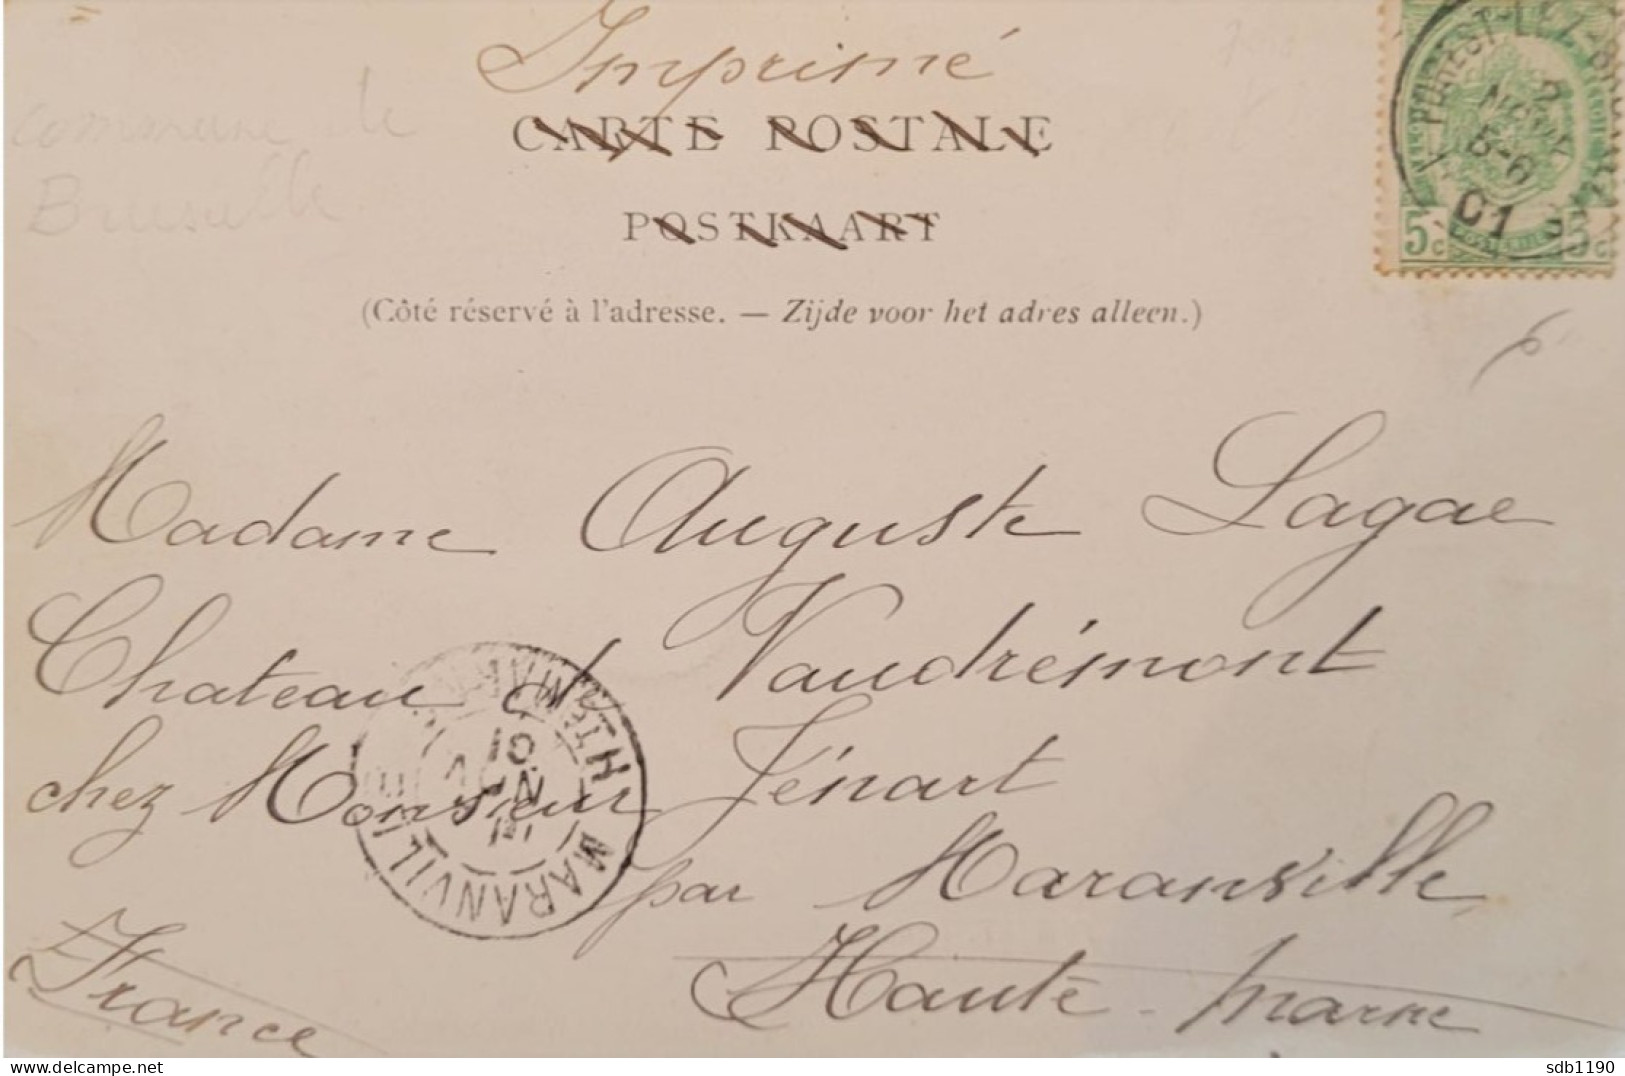 Imprimé
CARTE POSTALE
POSTKAART
(Côté réservé à l'adresse. — Zijde voor het adres alleen.)
commune de
5c 5c
NOV
5-6
01
Madame Auguste Lagae
Chateau de Vaudrémont
chez Monsieur Jénart
par Maranville
Haute-Marne
France
MARANVILLE
HTE MARNE
NOV
01
delcampe.net
sdb1190